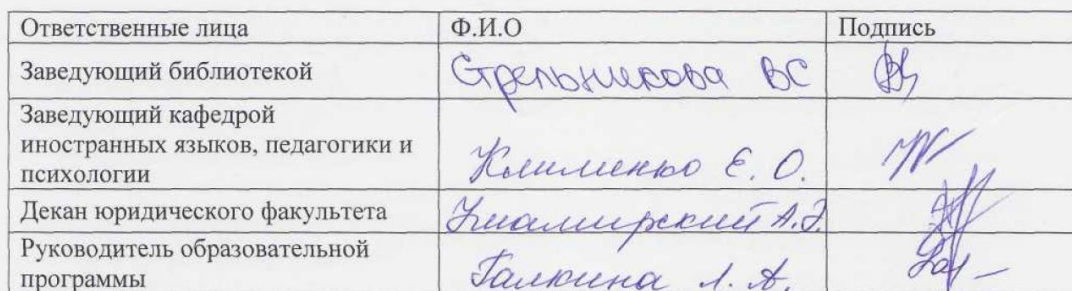 Ответственные лица Ф.И.О Подпись
Заведующий библиотекой Стрельникова ВС
Заведующий кафедрой
иностранных языков, педагогики и
психологии Клименко Е. О.
Декан юридического факультета А.
Руководитель образовательной
программы Галкина Л. А.